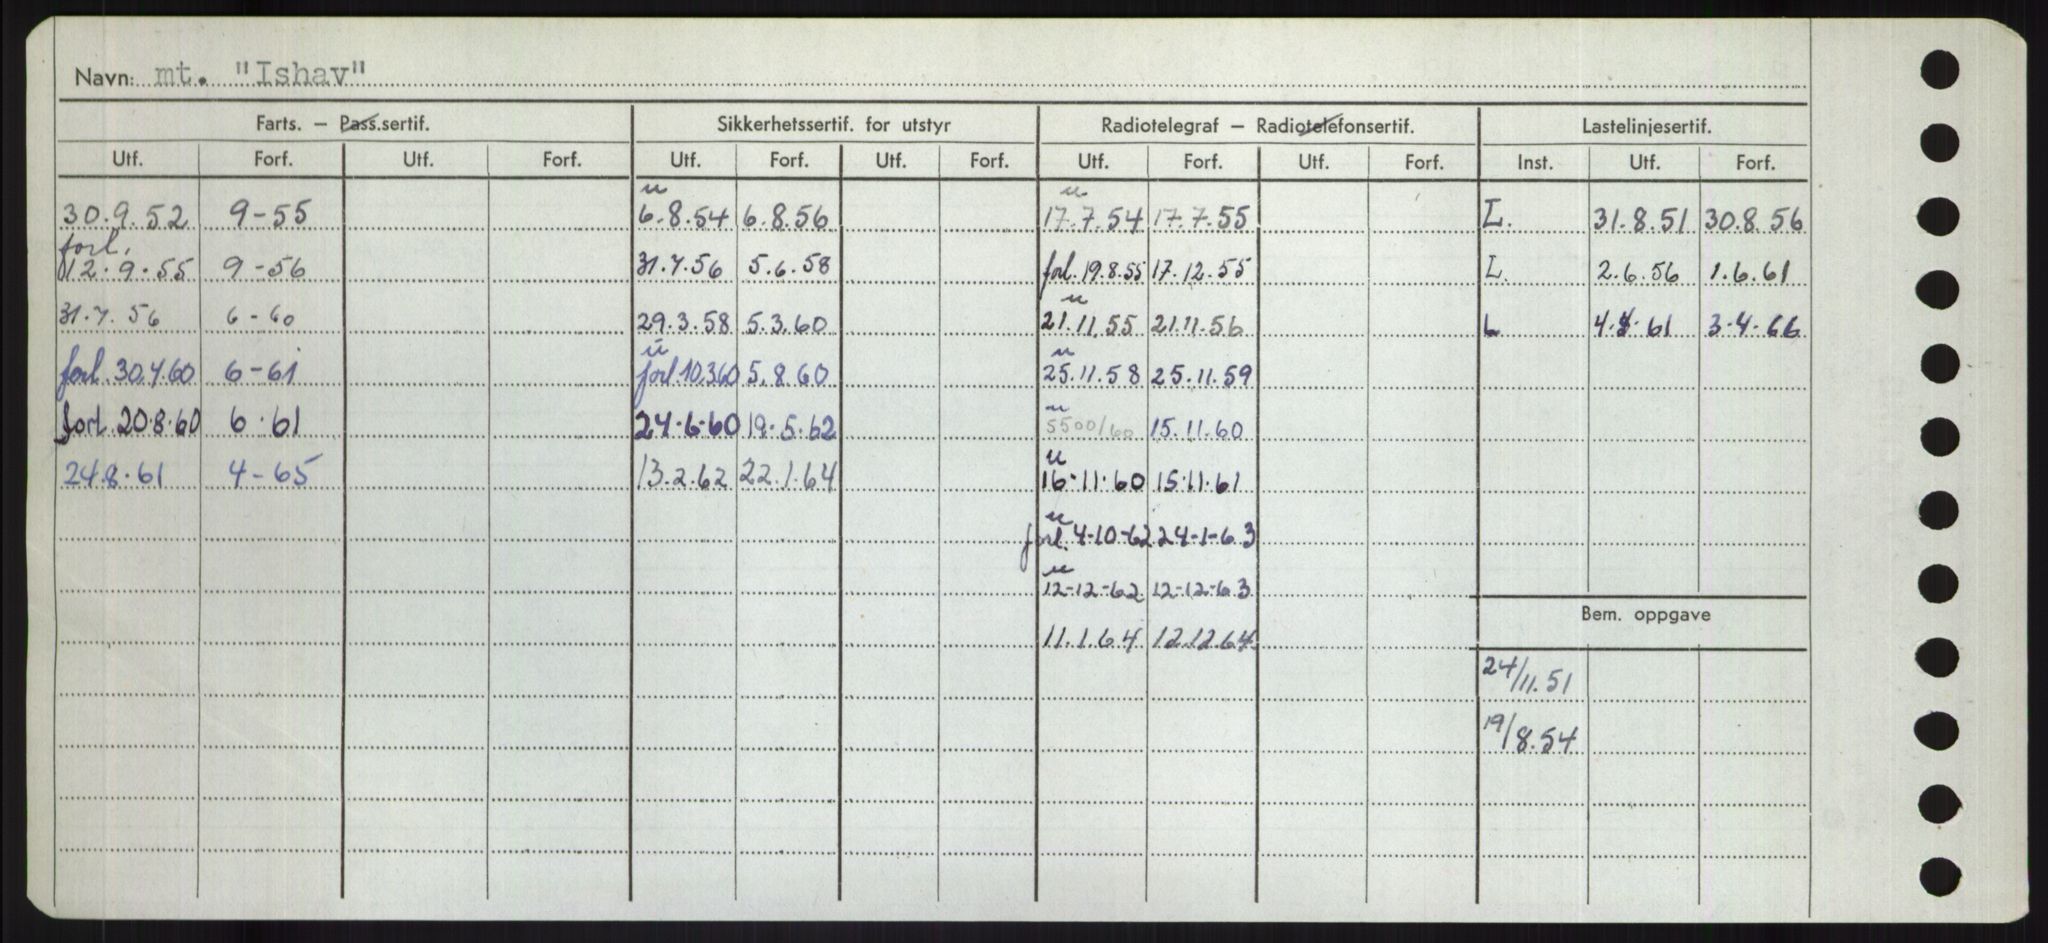 Navn: mt. "Ishav"
Farts. — Pass.sertif. Sikkerhetssertif. for utstyr Radiotelegraf — Radiotelefonsertif. Lastelinjesertif.
Utf. Forf. Utf. Forf. Utf. Forf. Utf. Forf. Utf. Forf. Utf. Forf. Inst. Utf. Forf.
u u
30.9.52 9-55 6.8.54 6.8.56 17.7.54 17.7.55 L. 31.8.51 30.8.56
forl.
12.9.55 9-56 31.7.56 5.6.58 forl. 19.8.55 17.12.55 L. 2.6.56 1.6.61
u
31.7.56 6-60 29.3.58 5.3.60 21.11.55 21.11.56 L 61 3-4-66
u u
forl. 30.4.60 6-61 forl. 10.3.60 5.8.60 25.11.58 25.11.59
u
forl. 20.8.60 6.61 24.6.60 19.5.62 5500/60 15.11.60
u
24.8.61 4-65 13.2.62 22.1.64 16.11.60 15.11.61
u
forl. 4-10-62 24-1-63
u
12-12-62 12-12-63
Bem. oppgave
11.1.64 12.12.64
24/11.51
19/8.54